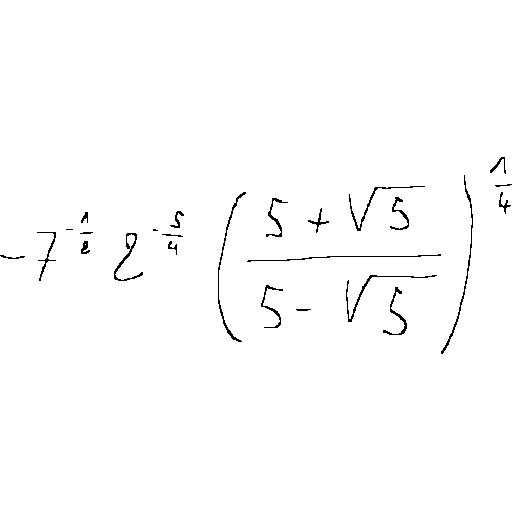 $-7^{-\frac{1}{2}} 2^{-\frac{5}{4}} \left( \frac{5 + \sqrt{5}}{5 - \sqrt{5}} \right)^{\frac{1}{4}}$